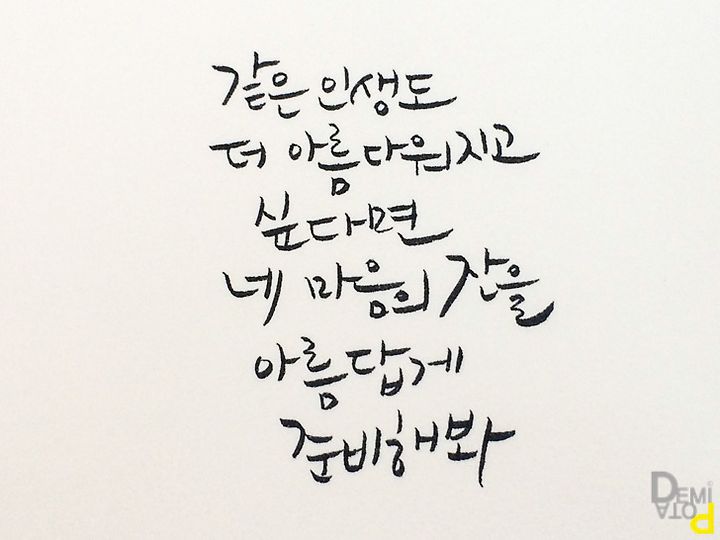 같은 인생도
더 아름다워지고
싶다면
네 마음의 잔을
아름답게
준비해봐
DEMI
POTATA